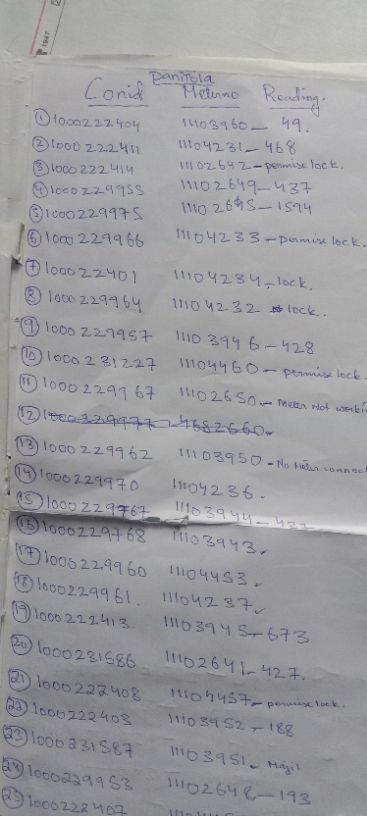 Panitola
Conid Meterno Reading.
① 1000222404 11103960 - 49.
② 1000222411 11104231 - 468
③ 1000222414 11102642 - permise lock.
④ 1000229955 11102649 - 437
⑤ 1000229975 11102645 - 1594
⑥ 1000229966 11104233 - permise lock.
⑦ 100022401 11104234, lock.
⑧ 1000229964 11104232 lock.
⑨ 1000229957 11103946 - 428
⑩ 1000231227 11104460 - permise lock.
⑪ 1000229967 11102650 - Meter Not worki
⑫ 1000229977 - 4682660.
⑬ 1000229962 11103950 - No Meter connec
⑭ 1000229970 11104236.
⑮ 1000229767 11103944 - 432
⑯ 1000229768 11103943,
⑰ 1000229960 11104453.
⑱ 1000229961. 11104237,
⑲ 1000222413. 11103945 - 673
⑳ 1000231586 11102641 - 427.
㉑ 1000222408 11104457 - permise lock.
㉒ 1000222403 11103952 - 188
㉓ 1000231587 11103951.
㉔ 1000229953 11102648 - 193
㉕ 1000222407